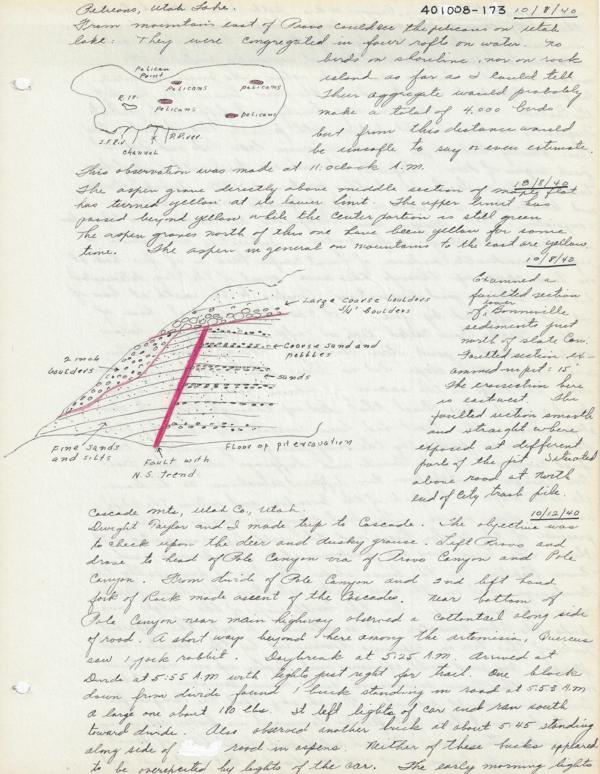 Pelicans, Utah Lake. 401008-173 10/8/40
From mountain east of Provo could see the pelicans on Utah
lake. They were congregated in four rafts on water. No
birds on shoreline, nor on rock
island as far as I could tell
Their aggregate would probably
make a total of 4,000 birds
but from this distance would
be unsafe to say or even estimate.
Pelican Point
Pelicans
pelicans
R. Is.
Pelicans
pelicans
S.F.Riv.
P. River
Channel
This observation was made at 11:oclock A.M.
10/8/40
The aspen grove directly above middle section of maple flat
has turned yellow at its lower limit. The upper limit has
passed beyond yellow while the center portion is still green
The aspen groves north of this one have been yellow for some
time. The aspen in general on mountains to the east are yellow
10/8/40
Examined a
faulted section
of lower Bonneville
sediments just
north of State Can.
Faulted section ex-
amined in pit: 15'
The crossection here
is east west. The
faulted section smooth
and straight where
exposed at different
parts of the pit. Situated
above road at north
end of City trash pile.
Large coarse boulders
3/4' boulders
2 inch
boulders
Coarse sand and
pebbles
Sands
Fine sands
and silts
Fault with
N.S. Trend
Floor of pit excavation
Cascade Mts, Utah Co., Utah. 10/12/40
Dwight Taylor and I made trip to Cascade. The objective was
to check upon the deer and dusky grouse. Left Provo and
drove to head of Pole Canyon via of Provo Canyon and Pole
Canyon. From divide of Pole Canyon and 2nd left hand
fork of Rock made assent of the Cascades. Near bottom of
Pole Canyon near main highway observed a cottontail along side
of road. A short ways beyond & here among the artemisia, Quercus
saw 1 jack rabbit. Daybreak at 5:25 A.M. Arrived at
Divide at 5:55 A.M with lights just right for trail. One block
down from divide found 1 buck standing in road at 5:53 A.M
a large one about 180 lbs. It left lights of car and ran south
toward divide. Also observed another buck at about 5:45 standing
along side of road in aspens. Neither of these bucks appeared
to be by lights of the car. The early morning lights